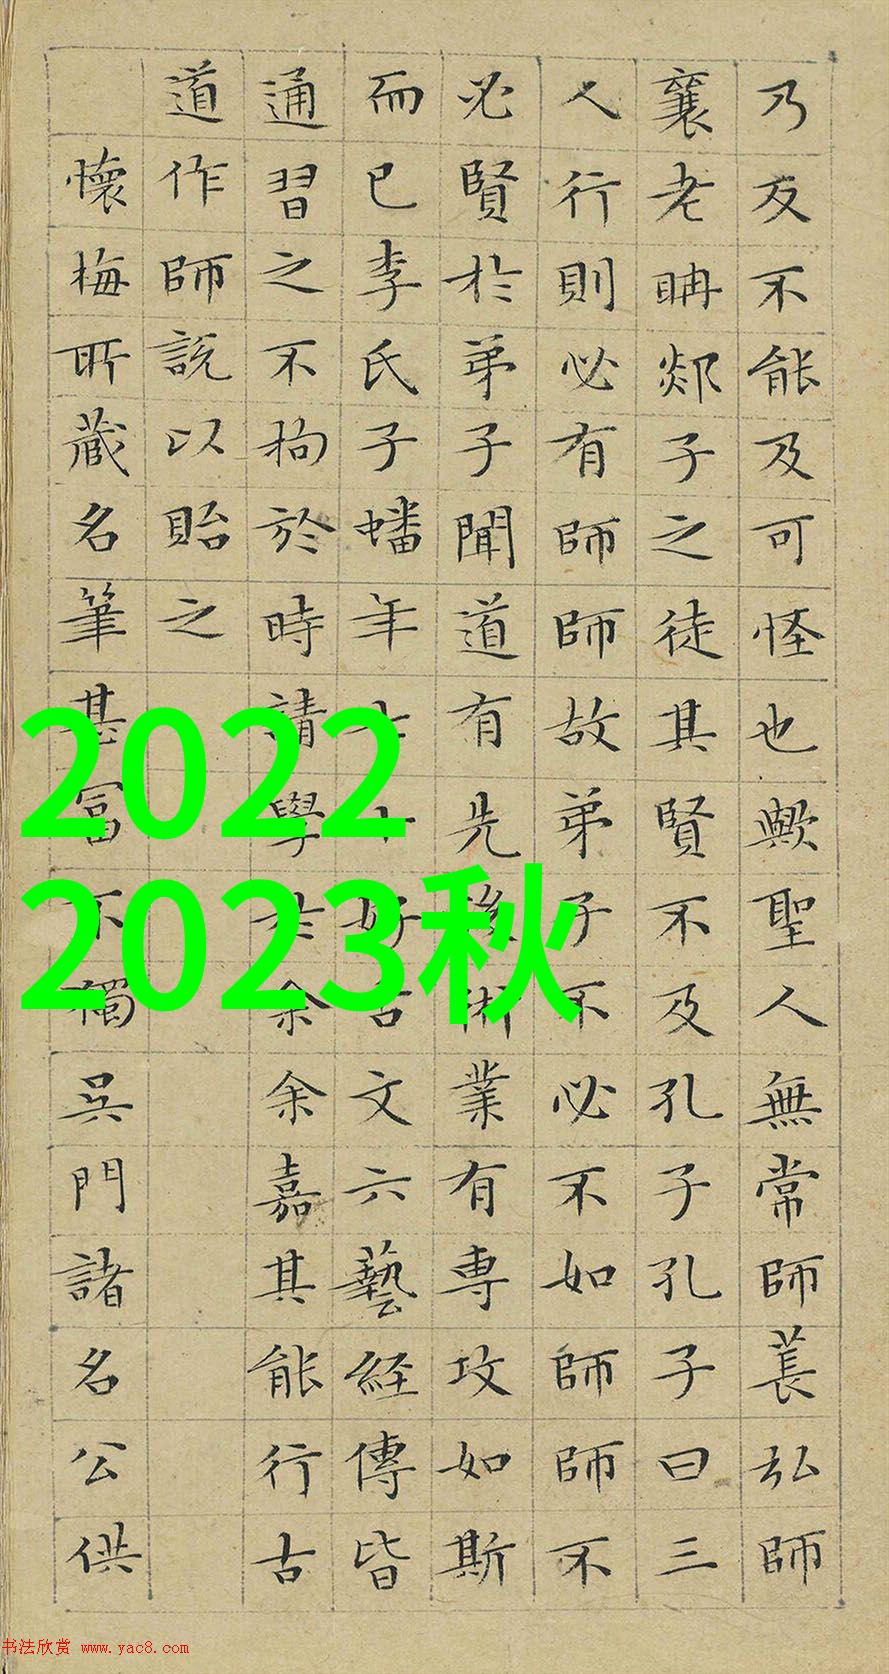 乃反不能及可怪也歟聖人無常師萇弘師
襄老聃郯子之徒其賢不及孔子孔子曰三
人行則必有師師故弟子不必不如師師不
必賢於弟子聞道有先後術業有專攻如斯
而已李氏子蟠年好古文六藝経傳皆
通習之不拘於時請學於余余嘉其能行古
道作師說以貽之
懷梅所藏名筆甚富不獨吳門諸名公供
2022
2023秋
书法欣赏 www.yac8.com